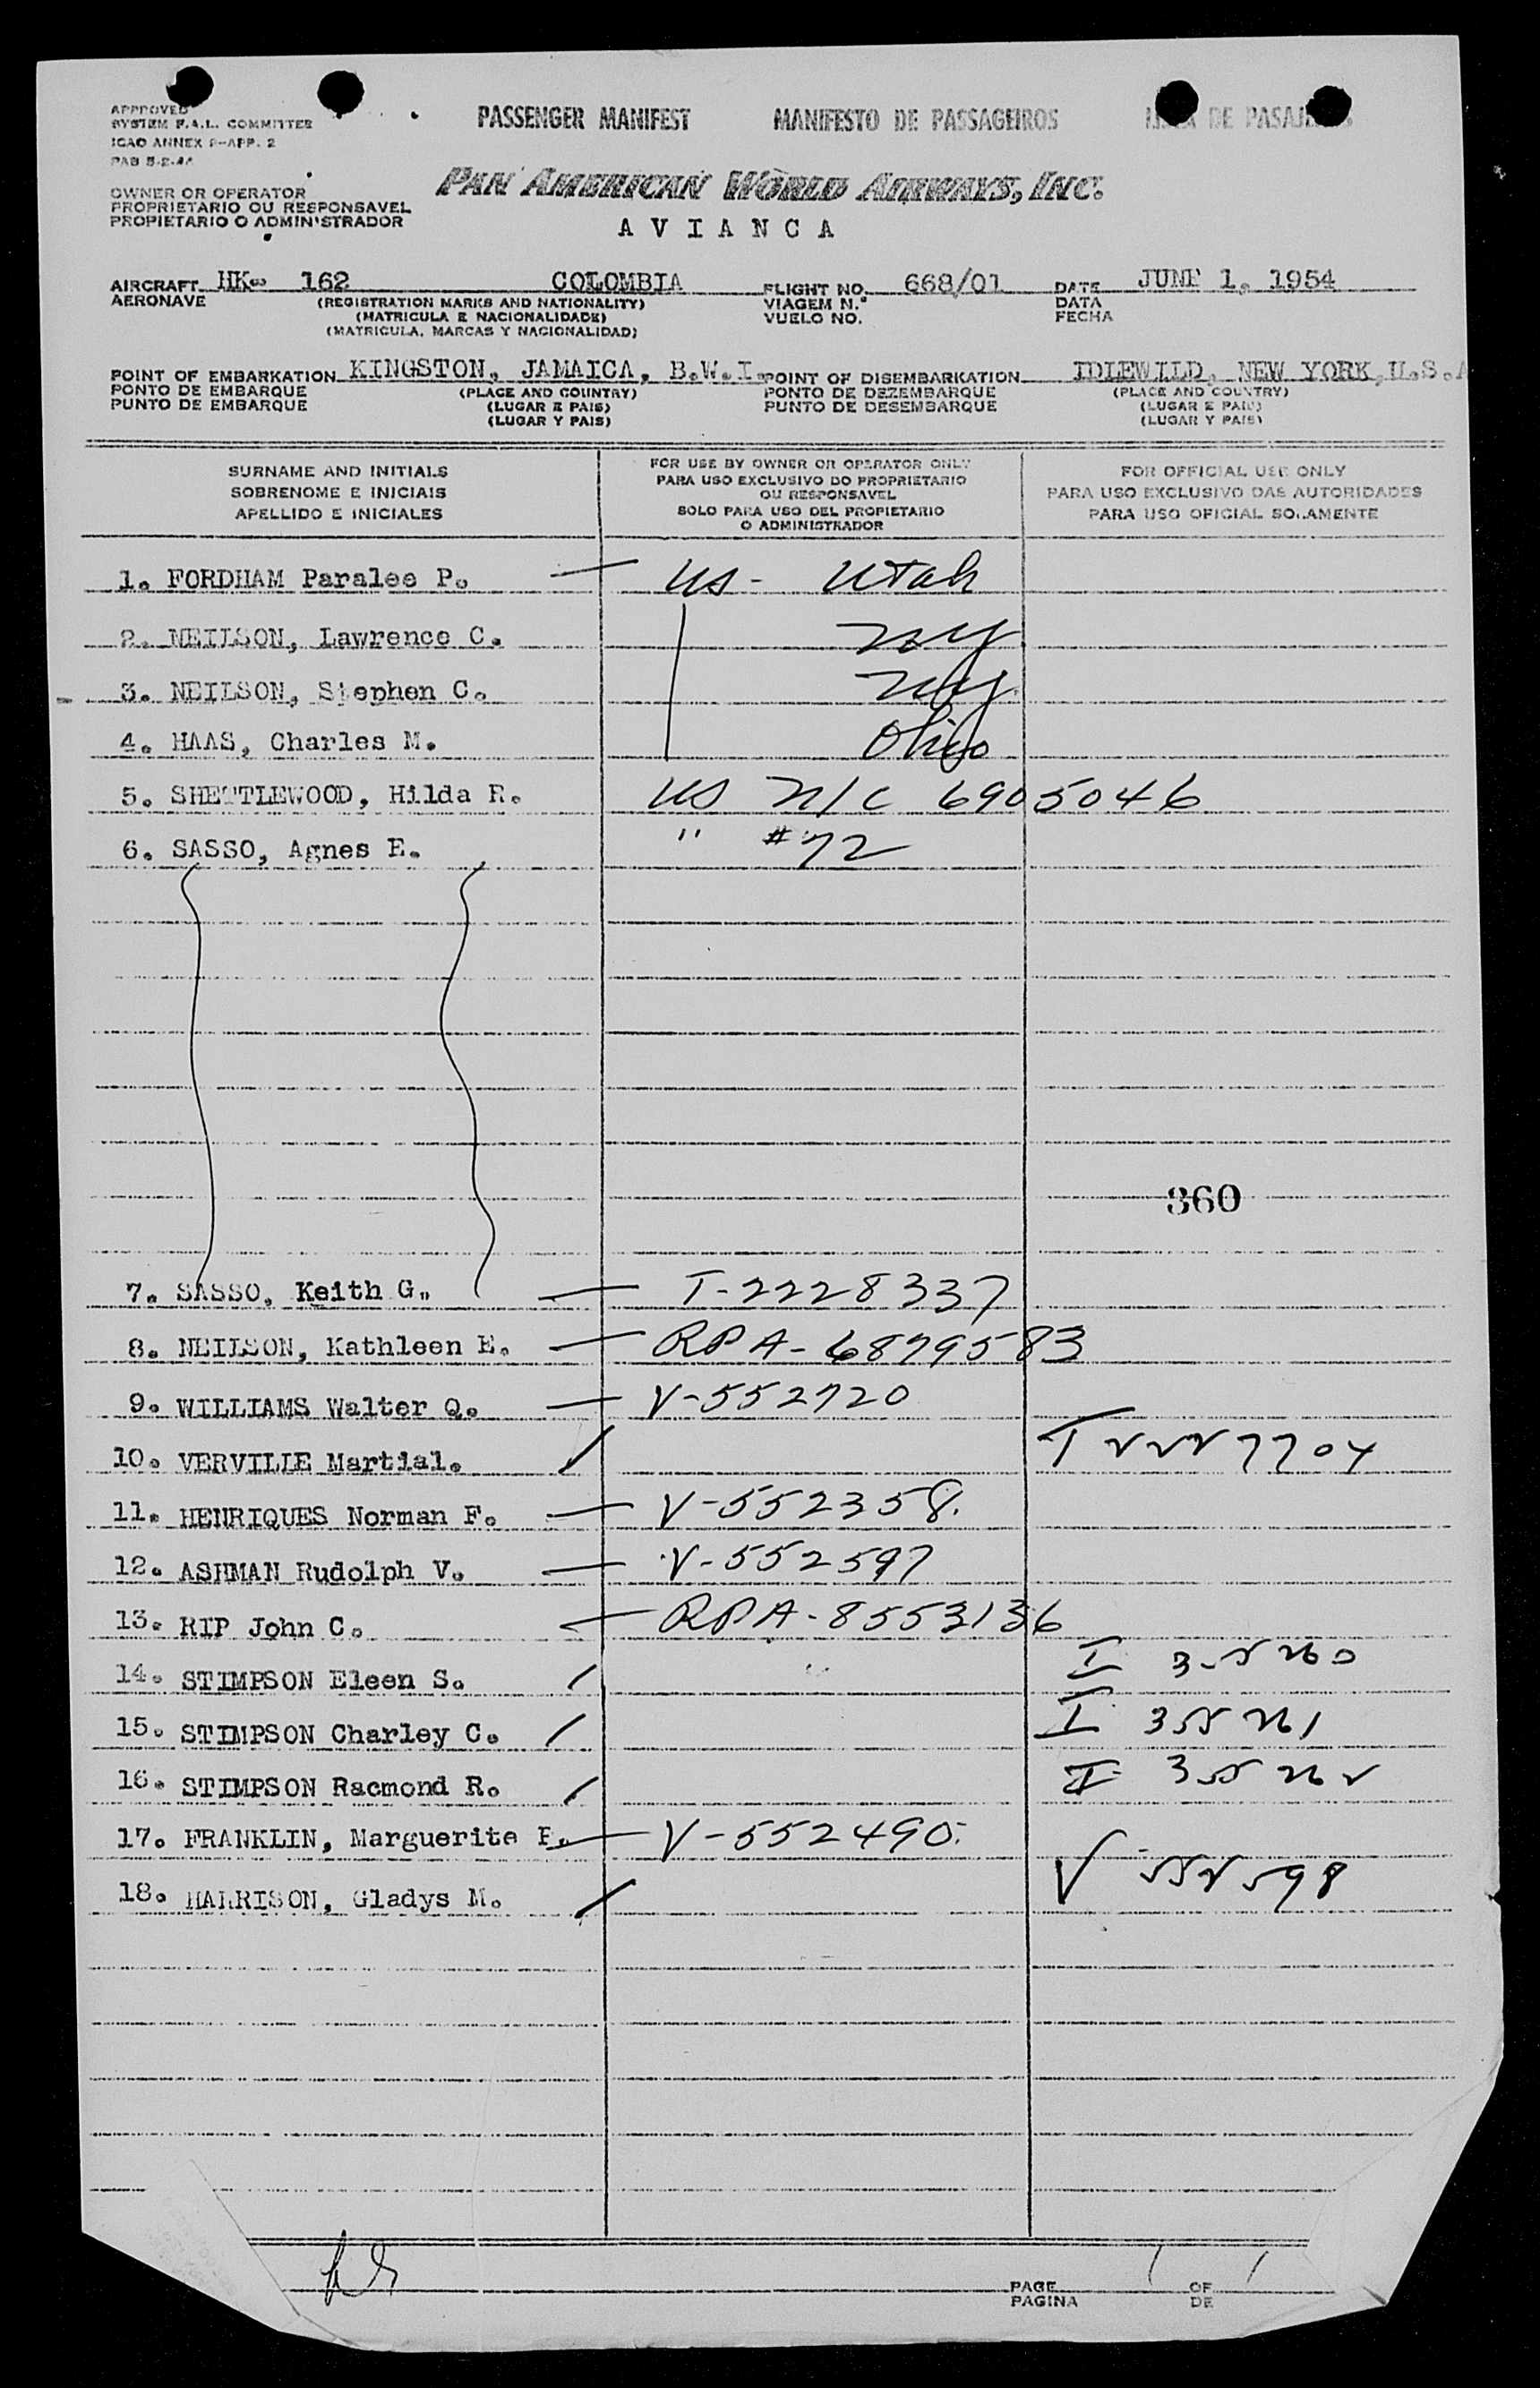 APPROVED
SYSTEM F.A.L. COMMITTEE
ICAO ANNEX 9-APP. 2
PAB 5-2-44
PASSENGER MANIFEST MANIFESTO DE PASSAGEIROS DE
OWNER OR OPERATOR
PROPRIETARIO OU RESPONSAVEL
PROPIETARIO O ADMINISTRADOR
PAN AMERICAN WORLD AIRWAYS, INC.
AVIANCA
AIRCRAFT HK- 162 COLOMBIA FLIGHT NO. 668/01 DATE JUNE 1, 1954
AERONAVE (REGISTRATION MARKS AND NATIONALITY) VIAGEM N.º DATA
(MATRICULA E NACIONALIDADE) VUELO NO. FECHA
(MATRICULA, MARCAS Y NACIONALIDAD)
POINT OF EMBARKATION KINGSTON, JAMAICA, B.W.I. POINT OF DISEMBARKATION IDLEWILD, NEW YORK, U.S.A
PONTO DE EMBARQUE (PLACE AND COUNTRY) PONTO DE DEZEMBARQUE (PLACE AND COUNTRY)
PUNTO DE EMBARQUE (LUGAR E PAIS) PUNTO DE DESEMBARQUE (LUGAR E PAIS)
(LUGAR Y PAIS) (LUGAR Y PAIS)
SURNAME AND INITIALS
SOBRENOME E INICIAIS
APELLIDO E INICIALES
FOR USE BY OWNER OR OPERATOR ONLY
PARA USO EXCLUSIVO DO PROPRIETARIO
OU RESPONSAVEL
SOLO PARA USO DEL PROPIETARIO
O ADMINISTRADOR
FOR OFFICIAL USE ONLY
PARA USO EXCLUSIVO DAS AUTORIDADES
PARA USO OFICIAL SOLAMENTE
1. FORDHAM Paralee P. — US - Utah
2. NEILSON, Lawrence C. NY
3. NEILSON, Stephen C. NY
4. HAAS, Charles M. Ohio
5. SHETTLEWOOD, Hilda R. US N/C 6905046
6. SASSO, Agnes E. " #72
360
7. SASSO, Keith G. — T-2228337
8. NEILSON, Kathleen E. — RPA-6879583
9. WILLIAMS Walter Q. — V-552720
10. VERVILLE Martial. / T 2227704
11. HENRIQUES Norman F. — V-552358.
12. ASHMAN Rudolph V. — V-552597
13. RIP John C. — RPA-8553136
14. STIMPSON Eleen S. / I 355260
15. STIMPSON Charley C. / I 355261
16. STIMPSON Racmond R. / I 355262
17. FRANKLIN, Marguerite — V-552490.
18. HARRISON, Gladys M. / V 552598
PAGE 1 OF 1
PAGINA DE